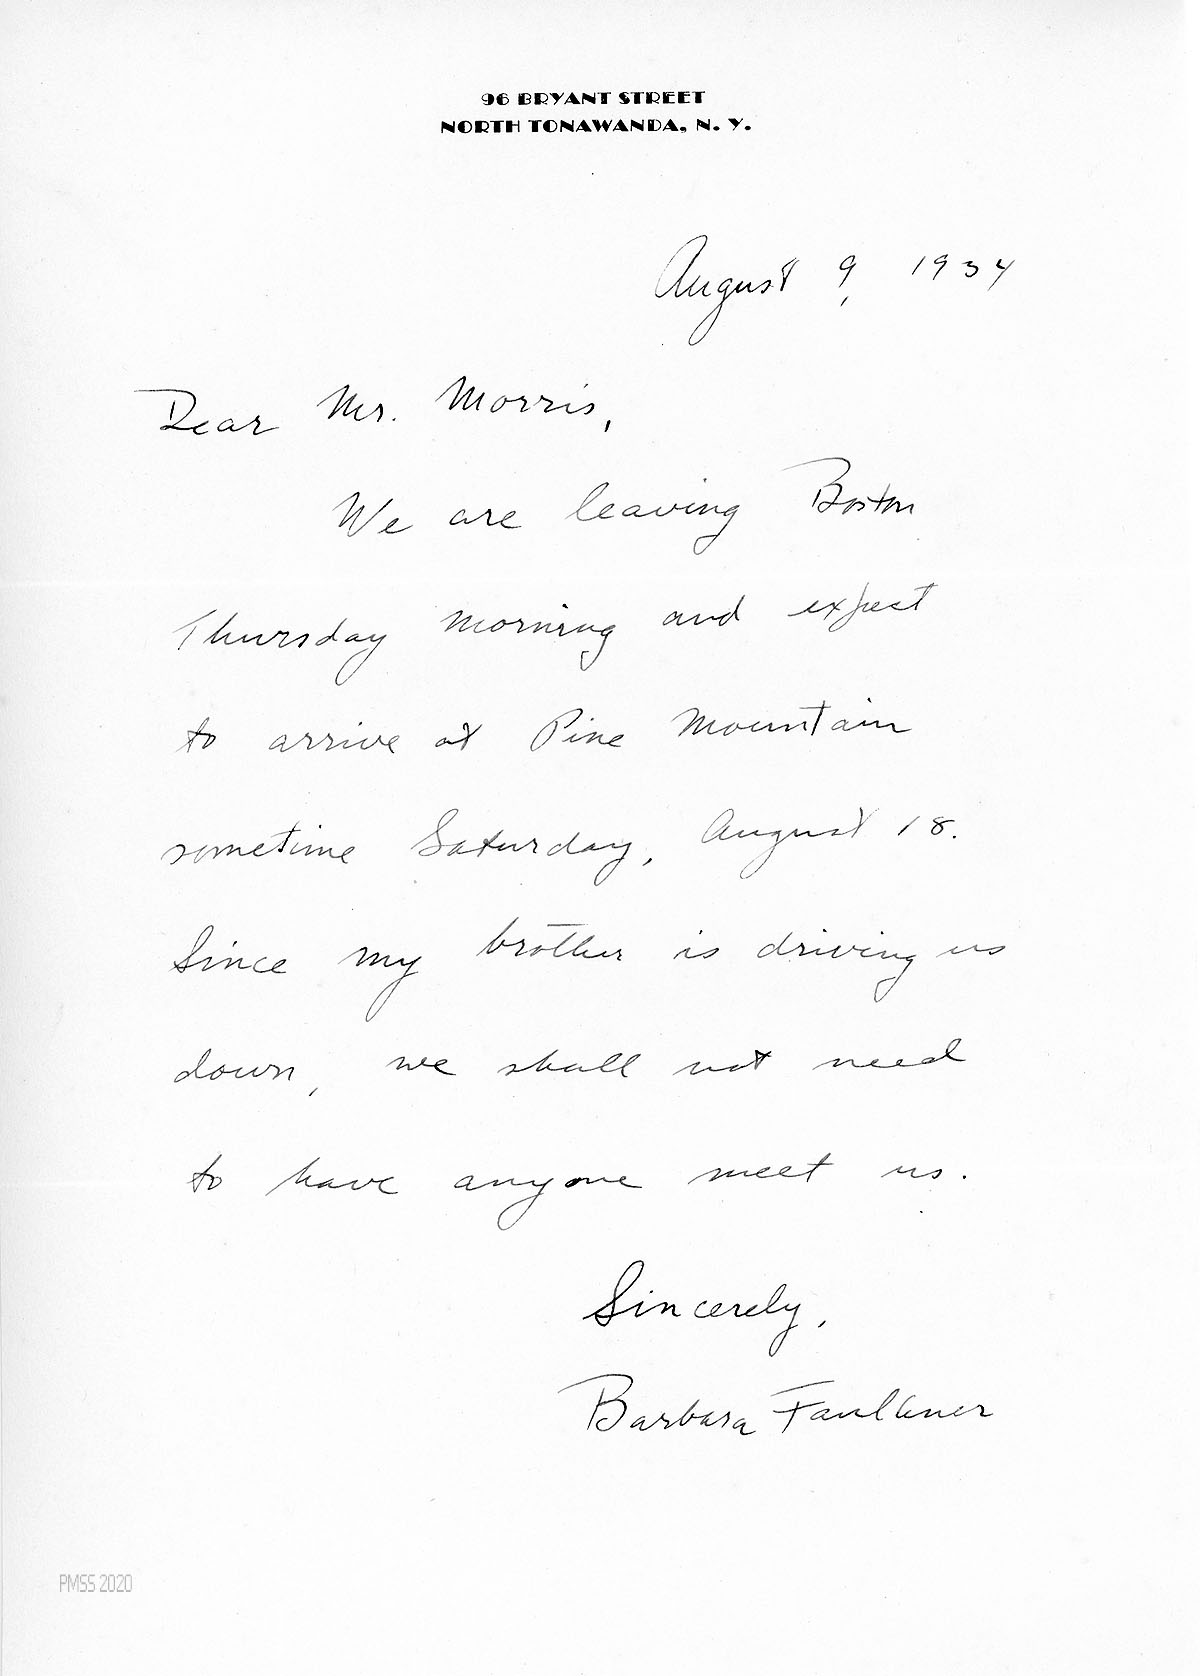 96 BRYANT STREET
NORTH TONAWANDA, N. Y.
August 9, 1934
Dear Mr. Morris,
We are leaving Boston
Thursday morning and expect
to arrive at Pine Mountain
sometime Saturday, August 18.
Since my brother is driving us
down, we shall not need
to have anyone meet us.
Sincerely,
Barbara Faulkner
PMSS 2020